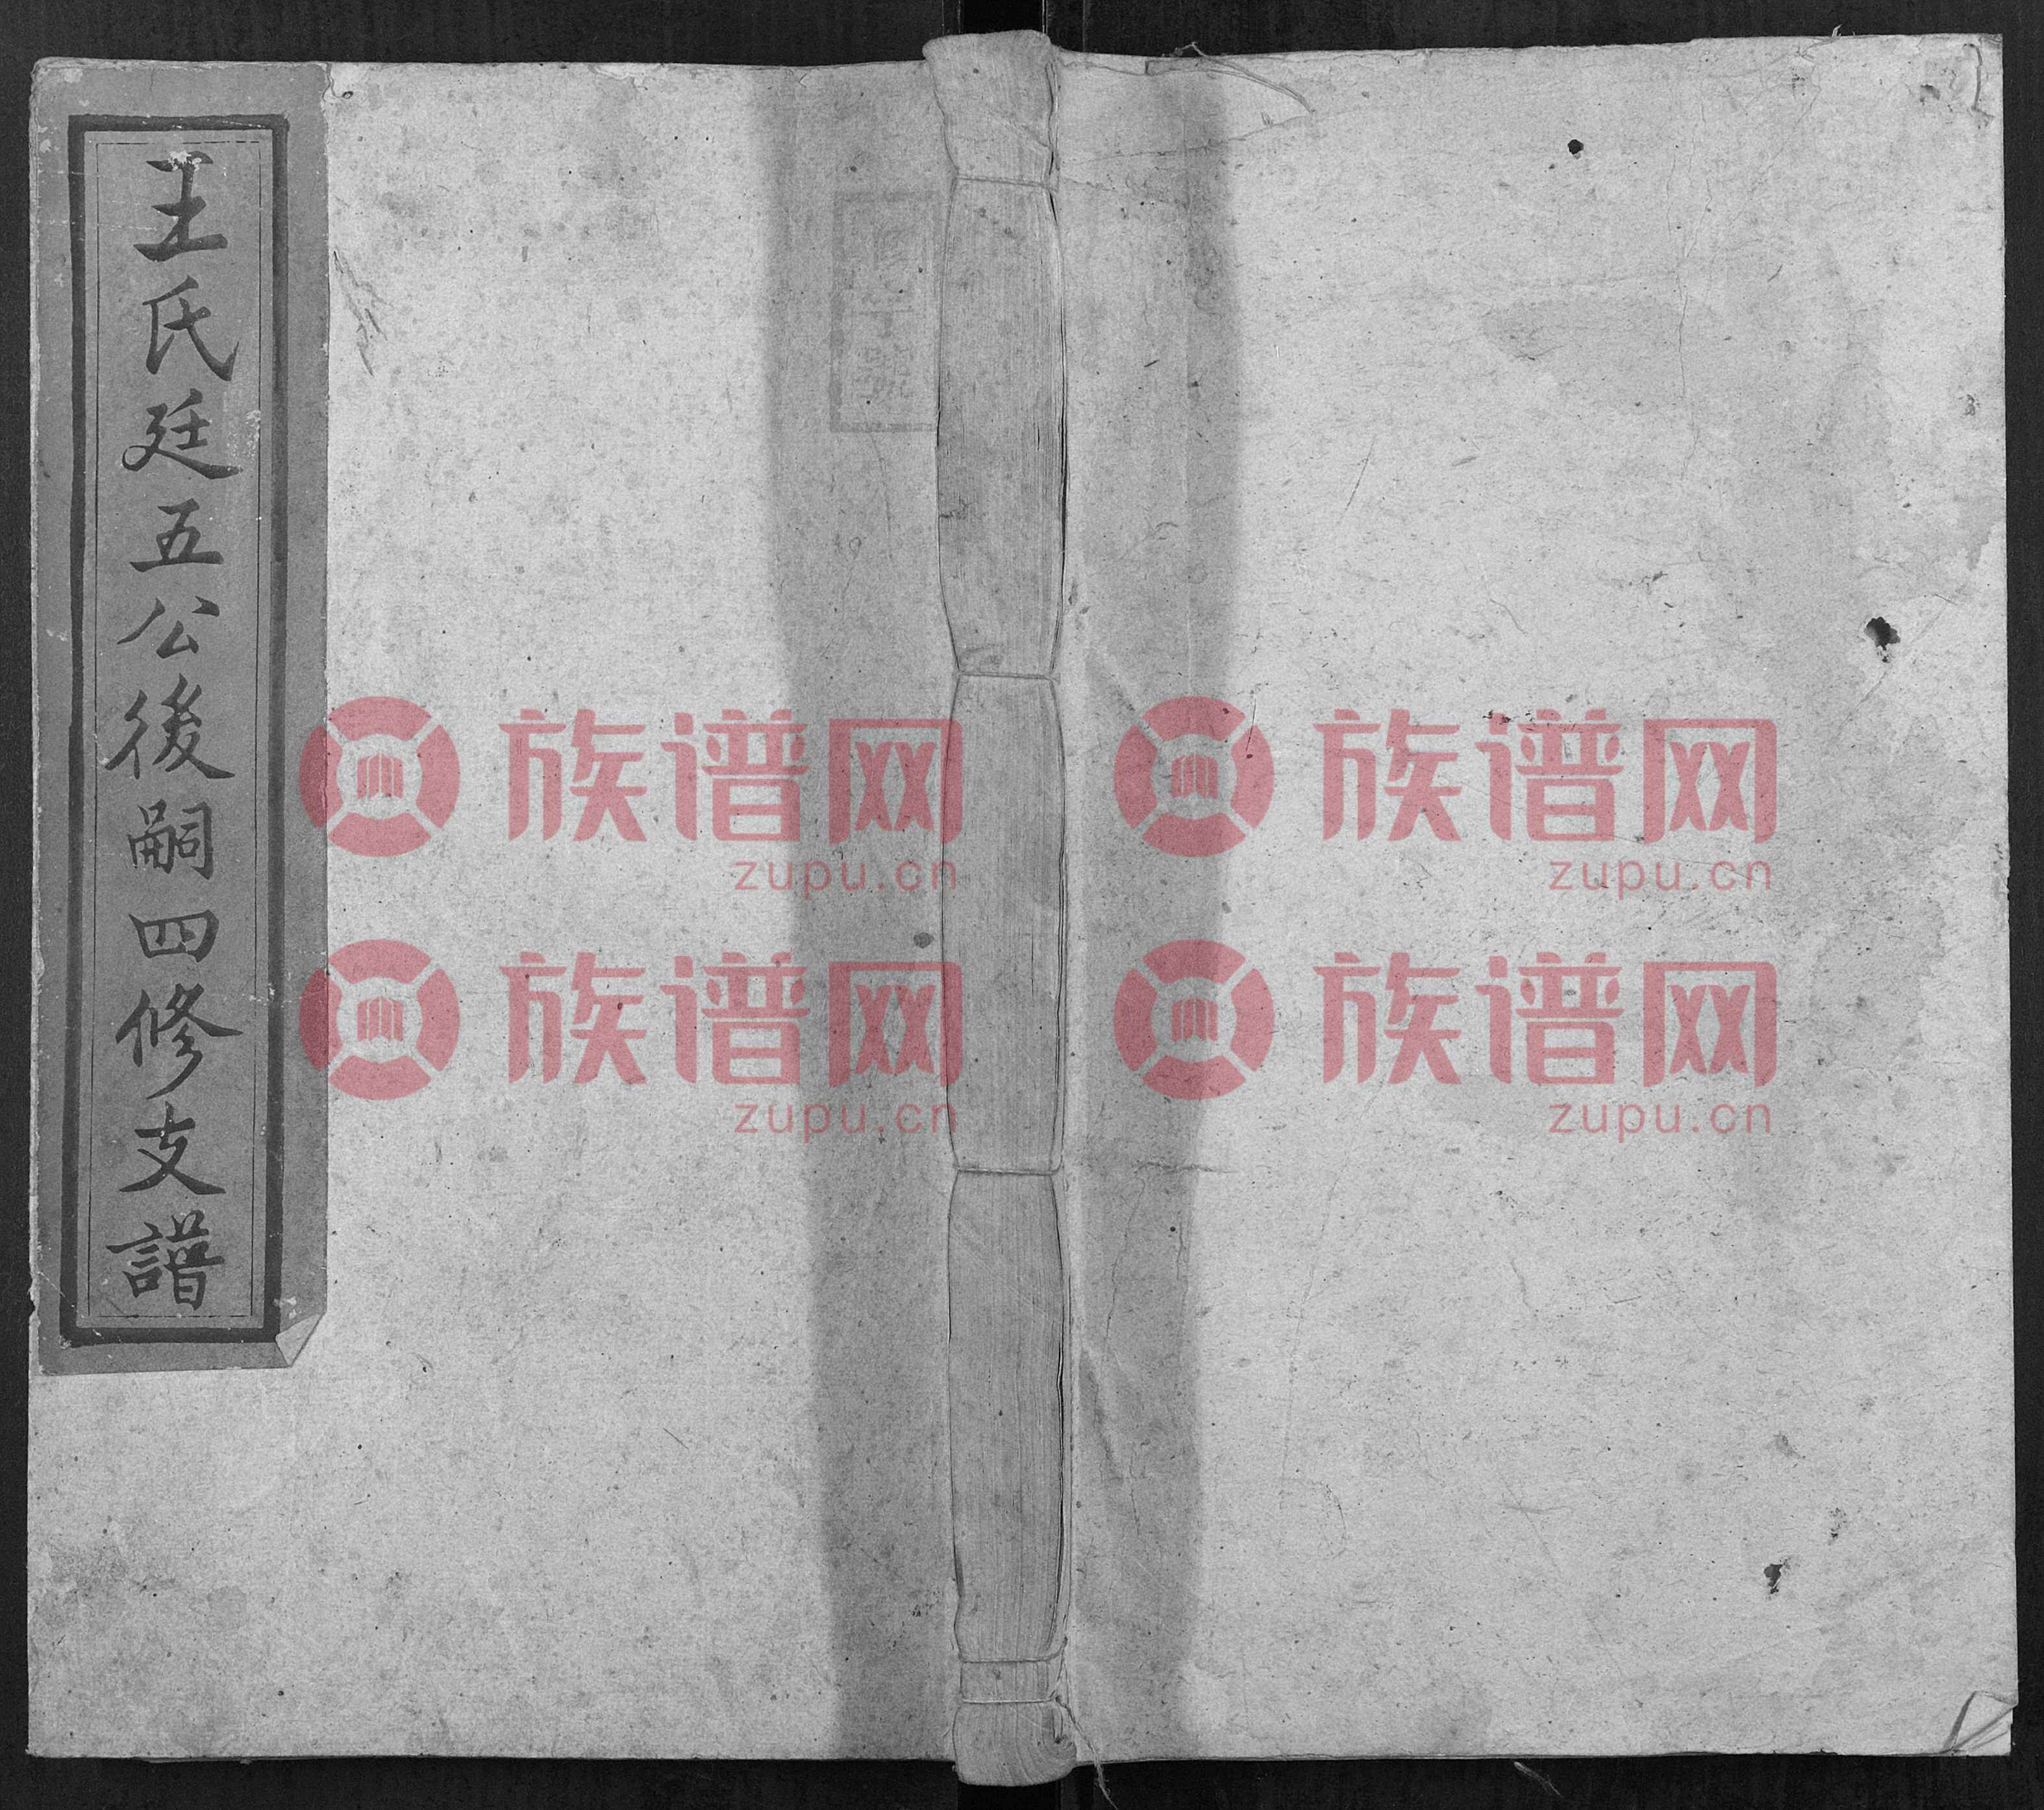 王氏廷五公後嗣四修支譜
族谱网
zupu.cn
族谱网
zupu.cn
族谱网
zupu.cn
族谱网
zupu.cn